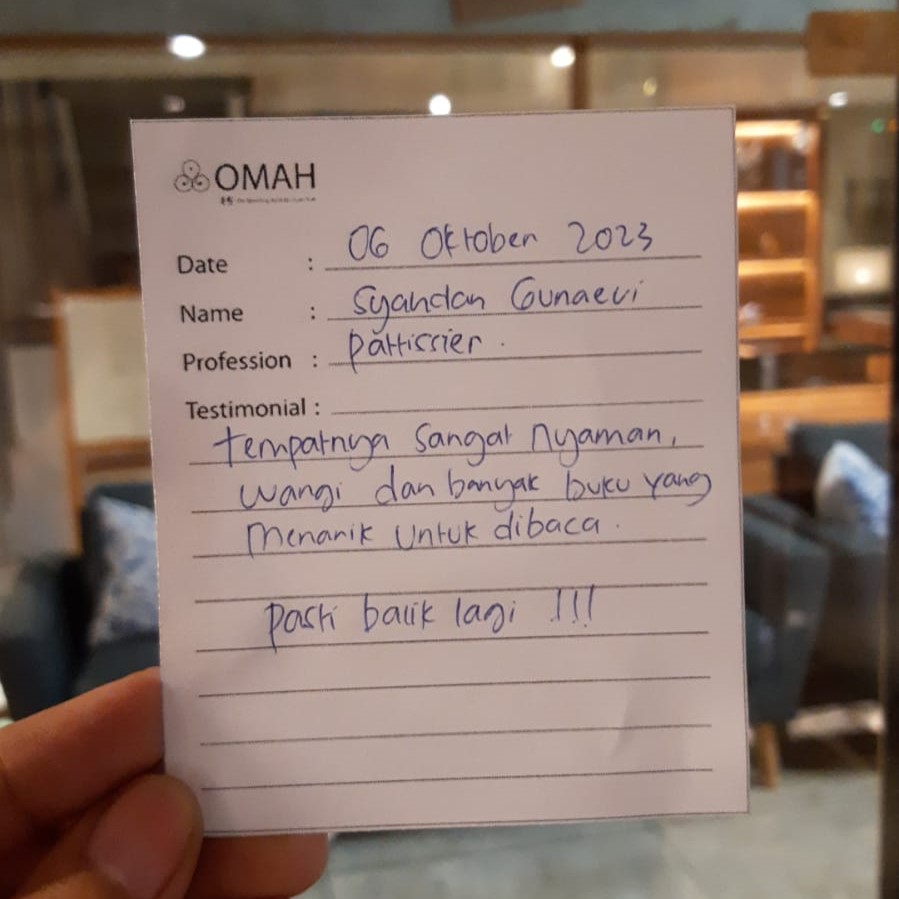 OMAH
Date : 06 Oktober 2023
Name : Syandan Gunaevi
Profession : pattissier.
Testimonial :
tempatnya sangat nyaman,
wangi dan banyak buku yang
menarik untuk dibaca.
pasti balik lagi !!!